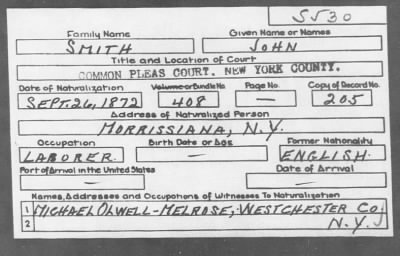 S530
Family Name Given Name or Names
SMITH JOHN
Title and Location of Court
COMMON PLEAS COURT. NEW YORK COUNTY.
Date of Naturalization Volume or Bundle No. Page No. Copy of Record No.
SEPT. 26, 1872 408 — 205
Address of Naturalized Person
MORRISSIANA, N.Y.
Occupation Birth Date or Age Former Nationality
LABORER. — ENGLISH.
Port of Arrival in the United States Date of Arrival
— —
Names, Addresses and Occupations of Witnesses To Naturalization
1 MICHAEL OLWELL-MELROSE, WESTCHESTER CO;
2 N.Y.